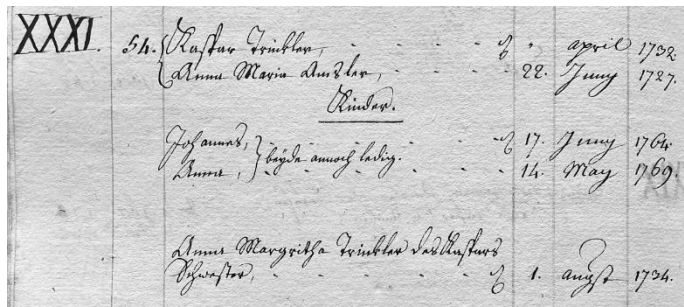 XXXI. 54. Kaspar Trinkler, - - - - " april 1732.
Anna Maria Amsler, - - - - 22. Juny 1727.
Kinder.
Johannes, - - - - 17. Juny 1764.
beyde annoch ledig.
Anna, - - - - 14. May 1769.
Anna Margritha Trinkler des Kaspars
Schwester, - - - - 1. augst 1734.